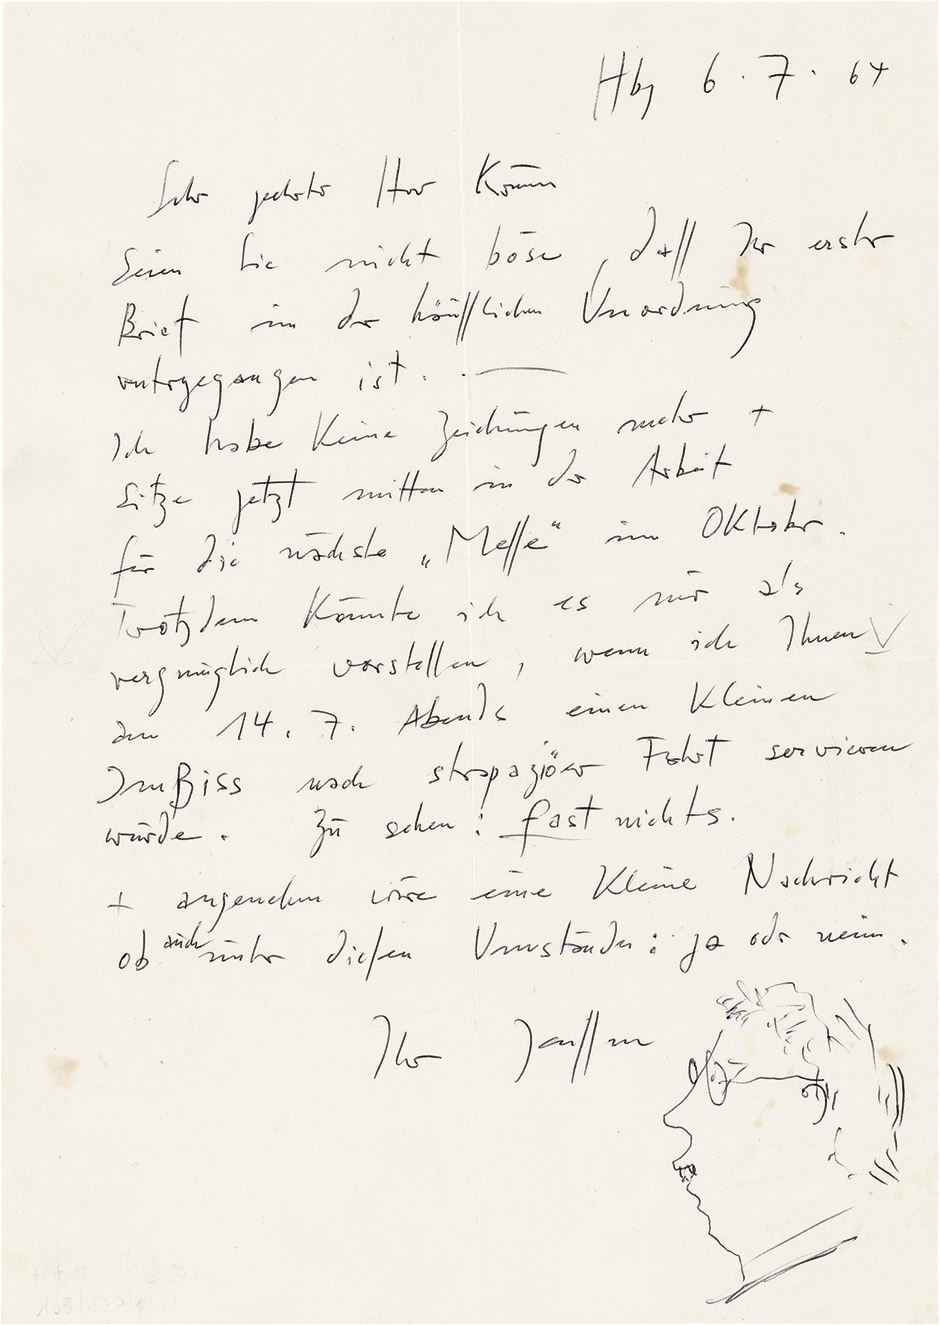 Hbg 6.7.64
Sehr geehrter Herr
Seien Sie nicht böse, daß Ihr erster
Brief in der häußlichen Unordnung
untergegangen ist. —
Ich habe keine Zeichnungen mehr +
sitze jetzt mitten in der Arbeit
für die nächste „Messe“ im Oktober.
Trotzdem könnte ich es mir als
vergnüglich vorstellen, wenn ich Ihnen
am 14.7. Abends einen kleinen
Imßiss nach strapaziöser Fahrt servieren
würde. Zu sehen: fast nichts.
+ angenehm wäre eine kleine Nachricht
ob auch unter diesen Umständen: ja oder nein.
Ihr Janssen